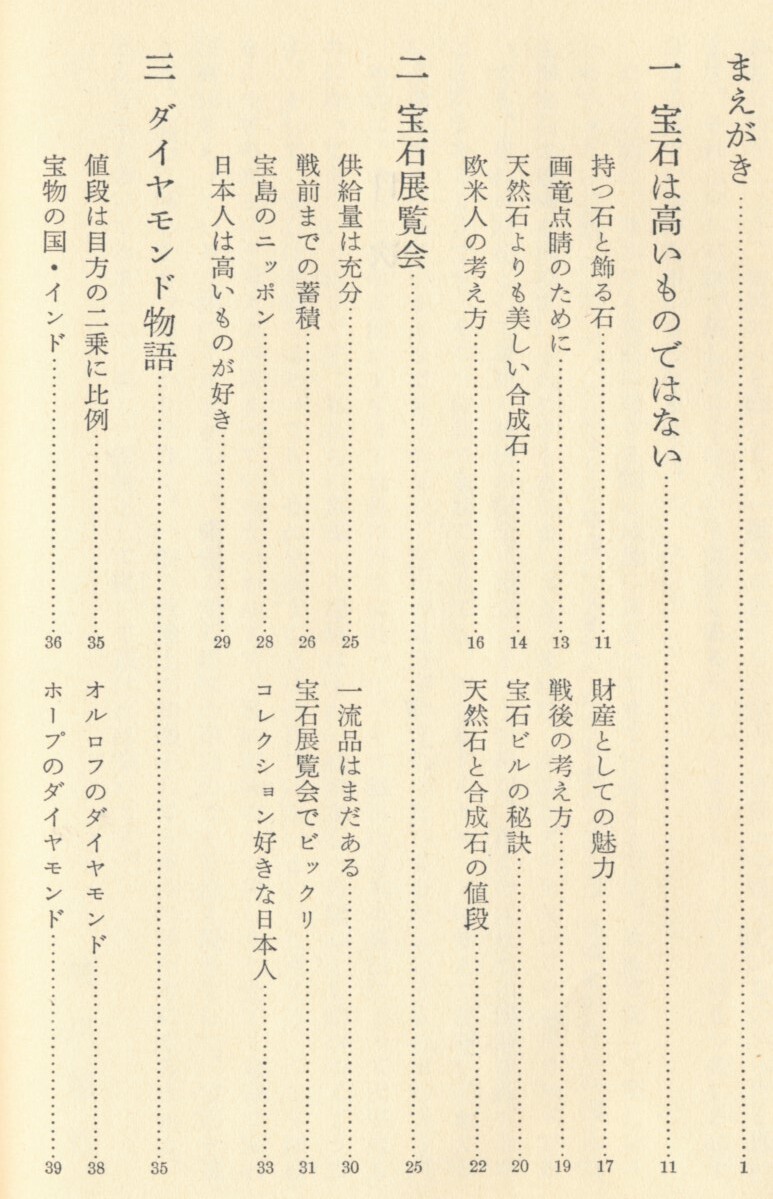 まえがき……1
一 宝石は高いものではない……11
持つ石と飾る石……11
画竜点睛のために……13
天然石よりも美しい合成石……14
欧米人の考え方……16
財産としての魅力……17
戦後の考え方……19
宝石ビルの秘訣……20
天然石と合成石の値段……22
二 宝石展覧会……25
供給量は充分……25
戦前までの蓄積……26
宝島のニッポン……28
日本人は高いものが好き……29
一流品はまだある……30
宝石展覧会でビックリ……31
コレクション好きな日本人……33
三 ダイヤモンド物語……35
値段は目方の二乗に比例……35
宝物の国・インド……36
オルロフのダイヤモンド……38
ホープのダイヤモンド……39